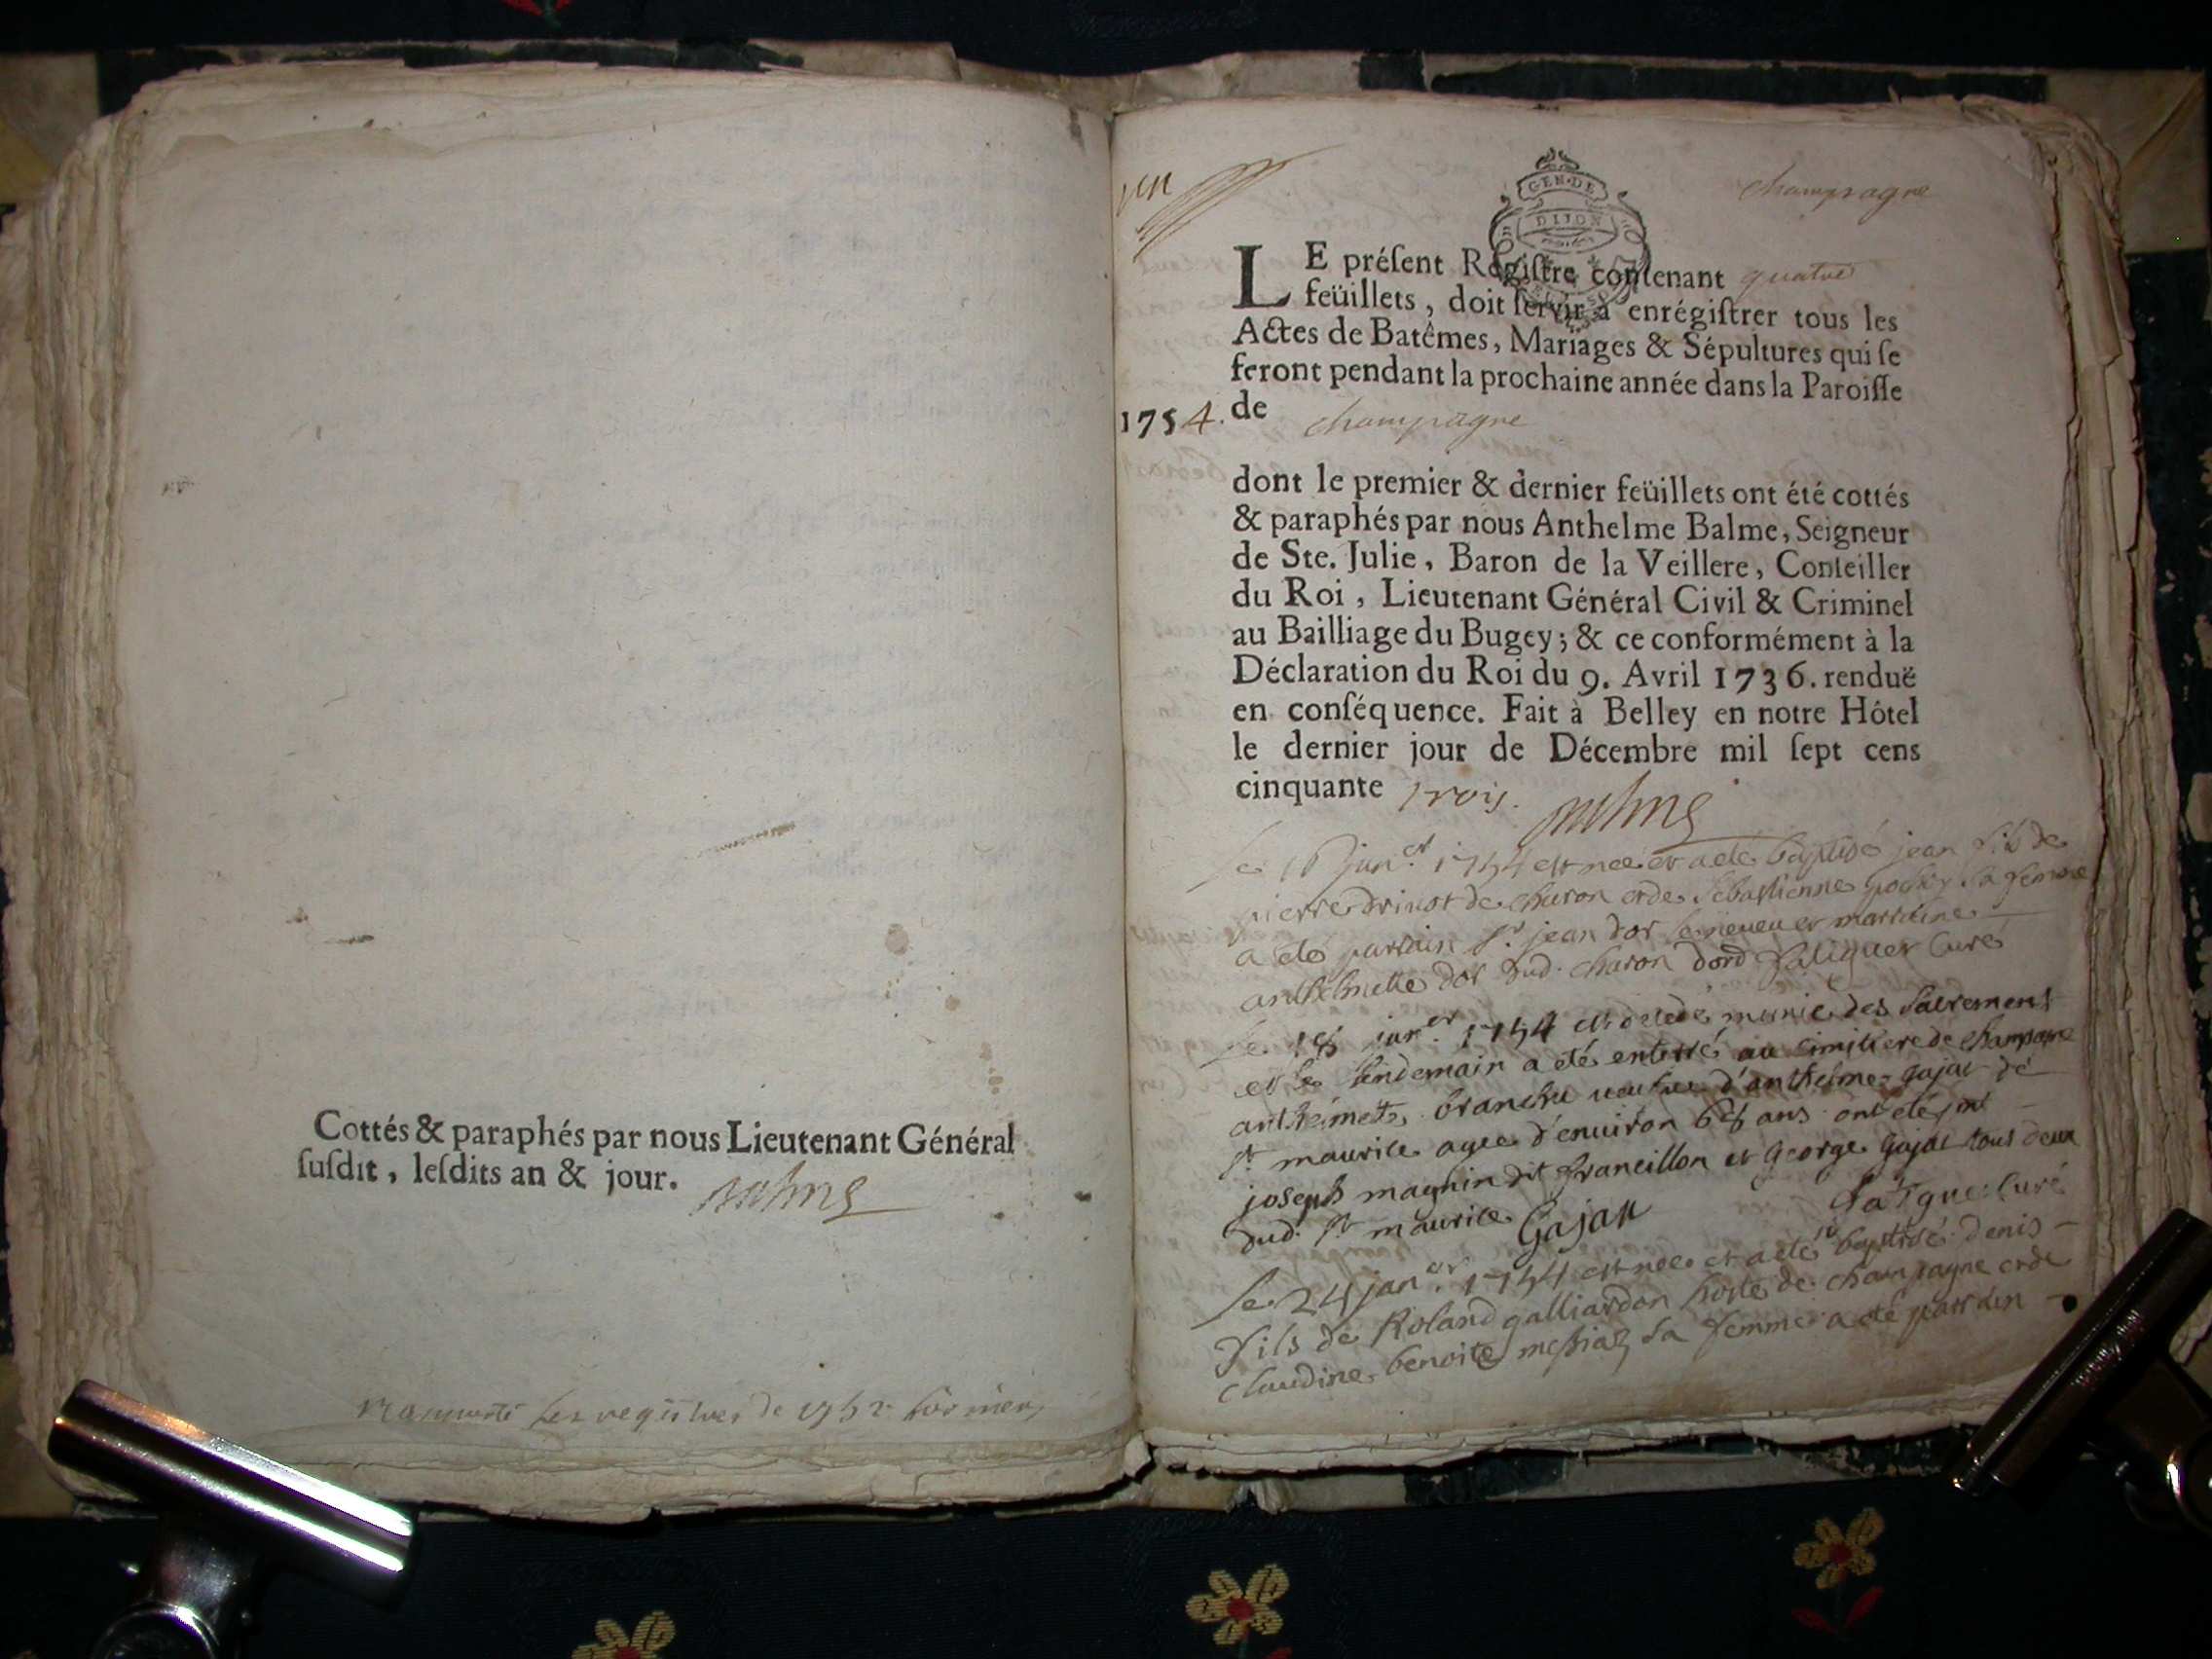 Cottés & paraphés par nous Lieutenant Général
ſuſdit, leſdits an & jour.
Balme
les registres de 1752
champagne
GEN·DE
DIJON
LE préſent Regiſtre contenant quatre
feüillets, doit ſervir à enrégiſtrer tous les
Actes de Batêmes, Mariages & Sépultures qui ſe
feront pendant la prochaine année dans la Paroiſſe
1754. de champagne
dont le premier & dernier feüillets ont été cottés
& paraphés par nous Anthelme Balme, Seigneur
de Ste. Julie, Baron de la Veillere, Conſeiller
du Roi, Lieutenant Général Civil & Criminel
au Bailliage du Bugey; & ce conformément à la
Déclaration du Roi du 9. Avril 1736. renduë
en conſéquence. Fait à Belley en notre Hôtel
le dernier jour de Décembre mil ſept cens
cinquante trois. Balme
le janer 1754 est nee et a eté baptisé jean fils de
pierre de charon et de Sebastienne sa femme
a eté parrain Sr jean dor le neveu et marraine
anthelmette dor dud. charon curé
le 18 janer 1754 est decedé munie des Sacremens
et le lendemain a eté enterré au cimitiere de champagne
anthelmette branche veufve d'anthelme gajac de
St maurice agee d'environ ans ont eté pnt
joseph magnin dit francillon et george gajac tous deux
dud. St maurice Gajan curé
le 24 janer 1754 est nee et a eté baptisé denis
fils de Roland galliardon hoste de champagne et de
claudine benoite messiaz sa femme a eté parrain